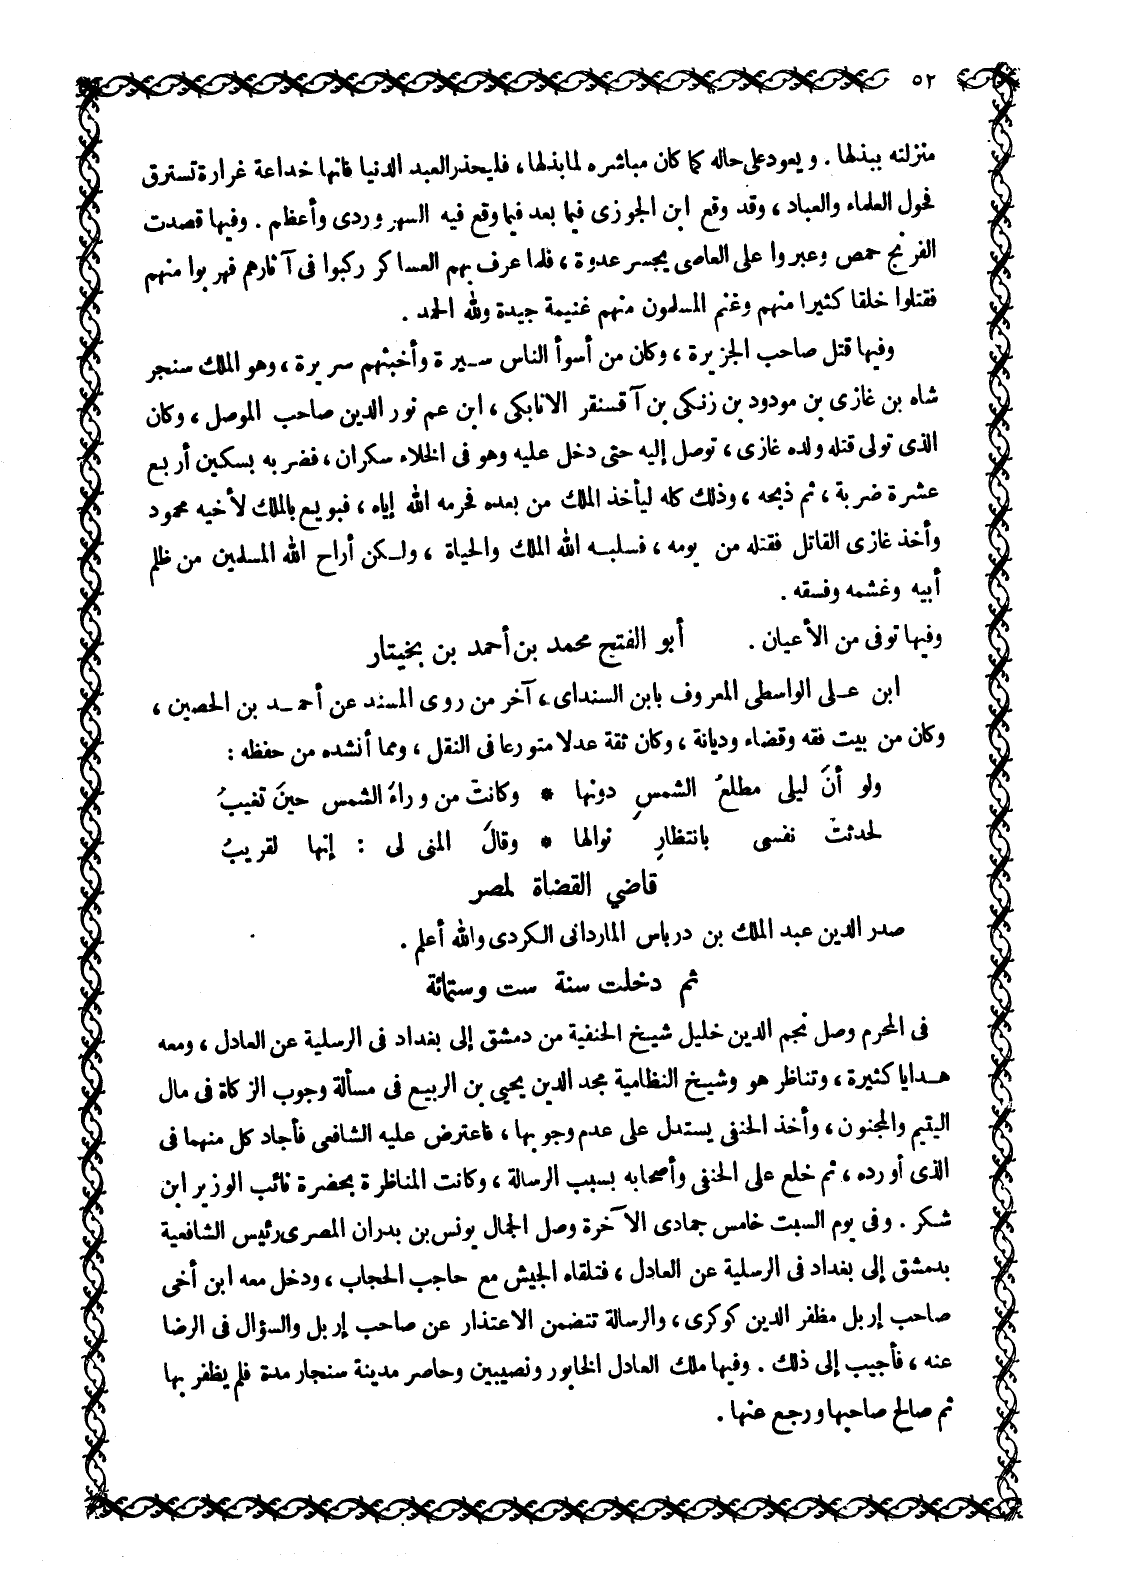 ٥٢
منزلته ببذلها . ويعود على حاله كما كان مباشره لما بذلها ، فليحذر العبد الدنيا فانها خداعة غرارة تسترق
فحول العلماء والعباد ، وقد وقع ابن الجوزى فيما بعد فيما وقع فيه السهروردى وأعظم . وفيها قصدت
الفرنج حمص وعبروا على العاصى بجسر عدوة ، فلما عرف بهم العساكر ركبوا فى آثارهم فهربوا منهم
فقتلوا خلقا كثيرا منهم وغنم المسلمون منهم غنيمة جيدة ولله الحمد .
وفيها قتل صاحب الجزيرة ، وكان من أسوأ الناس سيرة وأخبثهم سريرة ، وهو الملك سنجر
شاه بن غازى بن مودود بن زنكى بن آقسنقر الاتابكى ، ابن عم نور الدين صاحب الموصل ، وكان
الذى تولى قتله ولده غازى ، توصل إليه حتى دخل عليه وهو فى الخلاء سكران ، فضربه بسكين أربع
عشرة ضربة ، ثم ذبحه ، وذلك كله ليأخذ الملك من بعده فحرمه الله إياه ، فبويع بالملك لأخيه محمود
وأخذ غازى القاتل فقتله من يومه ، فسلبه الله الملك والحياة ، ولكن أراح الله المسلمين من ظلم
أبيه وغشمه وفسقه .
وفيها توفى من الأعيان . أبو الفتح محمد بن أحمد بن بخيتار
ابن على الواسطى المعروف بابن السنداى ، آخر من روى المسند عن أحمد بن الحصين ،
وكان من بيت فقه وقضاء وديانة ، وكان ثقة عدلا متورعا فى النقل ، ومما أنشده من حفظه :
ولو أنَ ليلى مطلعُ الشمسِ دونها * وكانتْ من وراءَ الشمس حينَ تغيبُ
لحدثتْ نفسى بانتظارِ نوالها * وقالَ المنى لى : إنها لقريبُ
قاضي القضاة لمصر
صدر الدين عبد الملك بن درباس الماردانى الكردى والله أعلم .
ثم دخلت سنة ست وستمائة
فى المحرم وصل نجم الدين خليل شيخ الحنفية من دمشق إلى بغداد فى الرسلية عن العادل ، ومعه
هدايا كثيرة ، وتناظر هو وشيخ النظامية مجد الدين يحيى بن الربيع فى مسألة وجوب الزكاة فى مال
اليتيم والمجنون ، وأخذ الحنفى يستدل على عدم وجوبها ، فاعترض عليه الشافعى فأجاد كل منهما فى
الذى أورده ، ثم خلع على الحنفى وأصحابه بسبب الرسالة ، وكانت المناظرة بحضرة نائب الوزير ابن
شكر . وفى يوم السبت خامس جمادى الآخرة وصل الجمال يونس بن بدران المصرى رئيس الشافعية
بدمشق إلى بغداد فى الرسلية عن العادل ، فتلقاه الجيش مع حاجب الحجاب ، ودخل معه ابن أخى
صاحب إربل مظفر الدين كوكرى ، والرسالة تتضمن الاعتذار عن صاحب إربل والسؤال فى الرضا
عنه ، فأجيب إلى ذلك . وفيها ملك العادل الخابور ونصيبين وحاصر مدينة سنجار مدة فلم يظفر بها
ثم صالح صاحبها ورجع عنها .